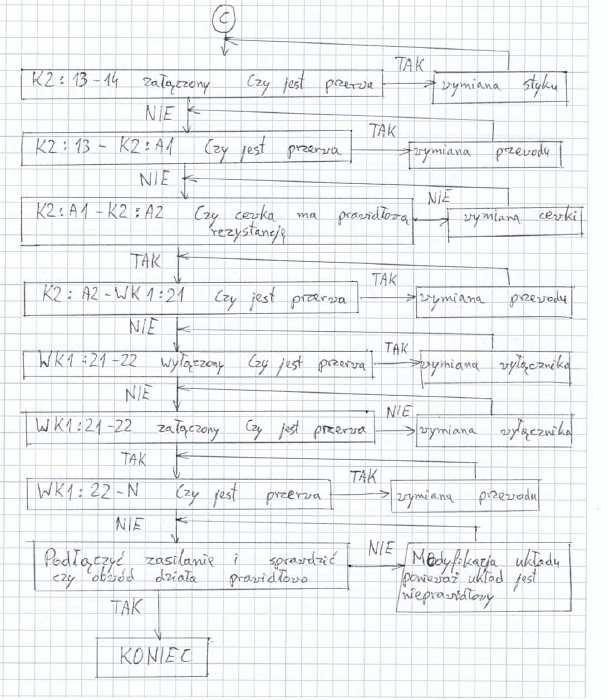 C
TAK
K2:13-14 załączony Czy jest przerwa
wymiana styku
NIE
TAK
K2:13 - K2:A1 Czy jest przerwa
wymiana przewodu
NIE
NIE
K2:A1-K2:A2 Czy cewka ma prawidłową
rezystancję
wymiana cewki
TAK
TAK
K2:A2-WK1:21 Czy jest przerwa
wymiana przewodu
NIE
TAK
WK1:21-22 wyłączony Czy jest przerwa
wymiana wyłącznika
NIE
NIE
WK1:21-22 załączony Czy jest przerwa
wymiana wyłącznika
TAK
TAK
WK1:22-N Czy jest przerwa
wymiana przewodu
NIE
NIE
Podłączyć zasilanie i sprawdzić
czy obwód działa prawidłowo
Modyfikacja układu
ponieważ układ jest
nieprawidłowy
TAK
KONIEC